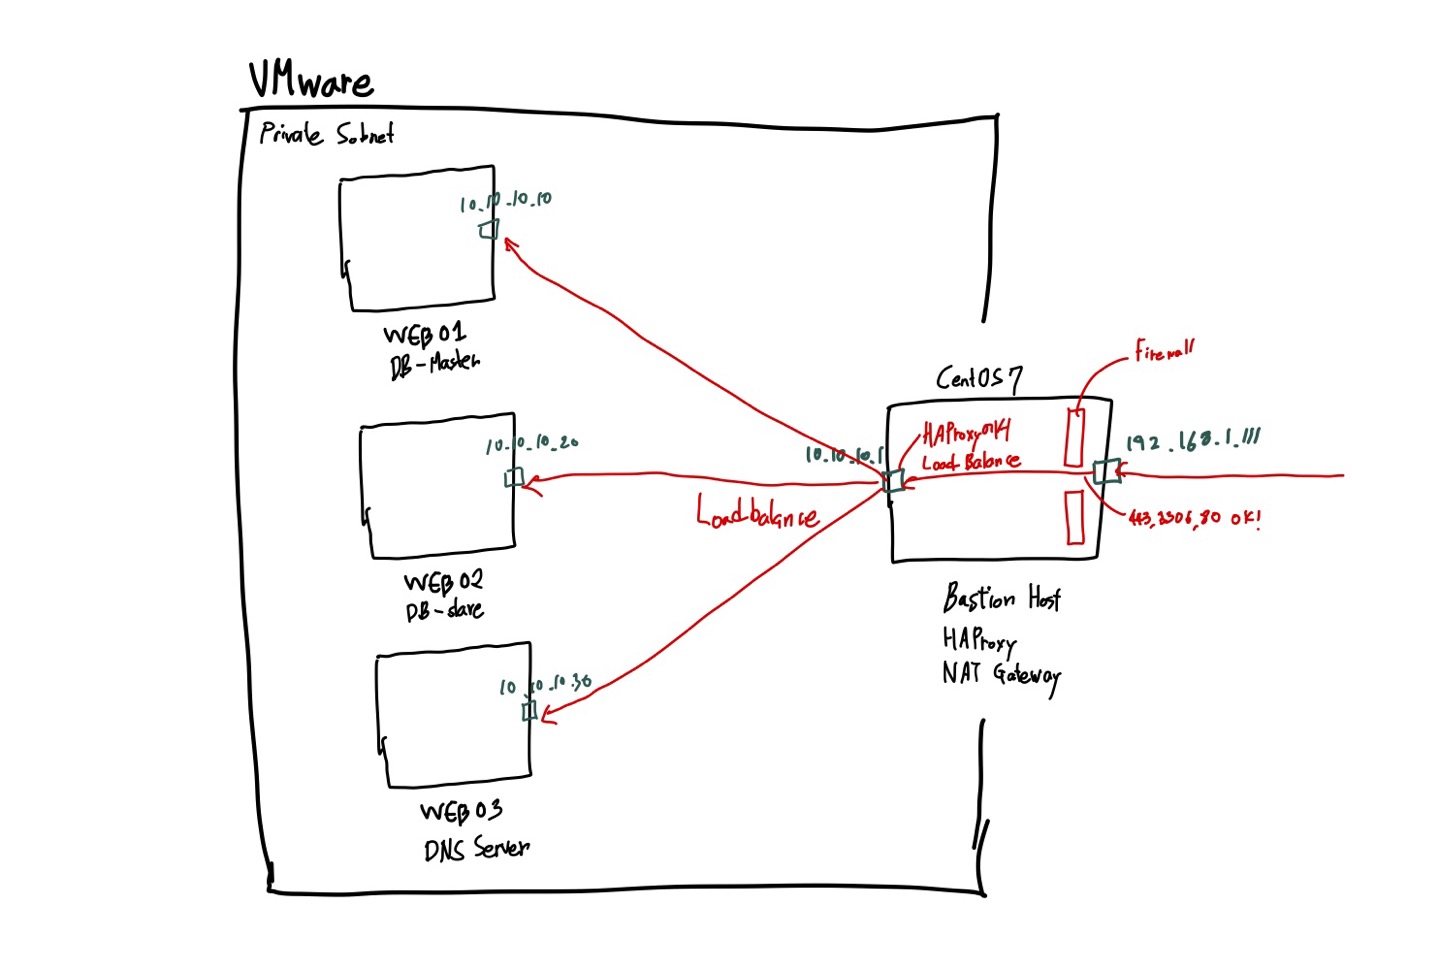 VMware
Private Subnet
10.10.10.10
WEB 01
DB-Master
10.10.10.20
WEB 02
DB-slave
10.10.10.30
WEB 03
DNS Server
Loadbalance
10.10.10.1
CentOS 7
Firewall
HAProxy에서
Load Balance
192.168.1.111
443,3306,80 OK!
Bastion Host
HAProxy
NAT Gateway